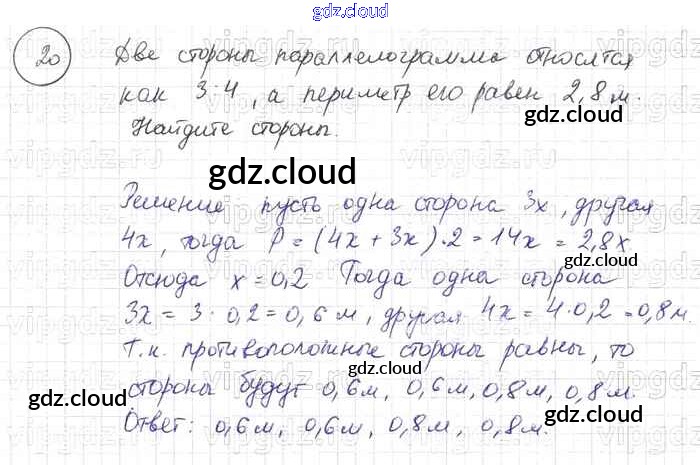 gdz.cloud
20 Две стороны параллелограмма относятся
как 3:4, а периметр его равен 2,8 м.
Найдите стороны.
gdz.cloud
gdz.cloud
Решение пусть одна сторона 3x, другая
4x, тогда P = (4x + 3x)·2 = 14x = 2,8x
gdz.cloud
Отсюда x = 0,2 Тогда одна сторона
3x = 3·0,2 = 0,6 м, другая 4x = 4·0,2 = 0,8 м.
gdz.cloud
Т.к. противоположные стороны равны, то
стороны будут 0,6м, 0,6м, 0,8м, 0,8м.
gdz.cloud
Ответ: 0,6м, 0,6м, 0,8м, 0,8м.
gdz.cloud